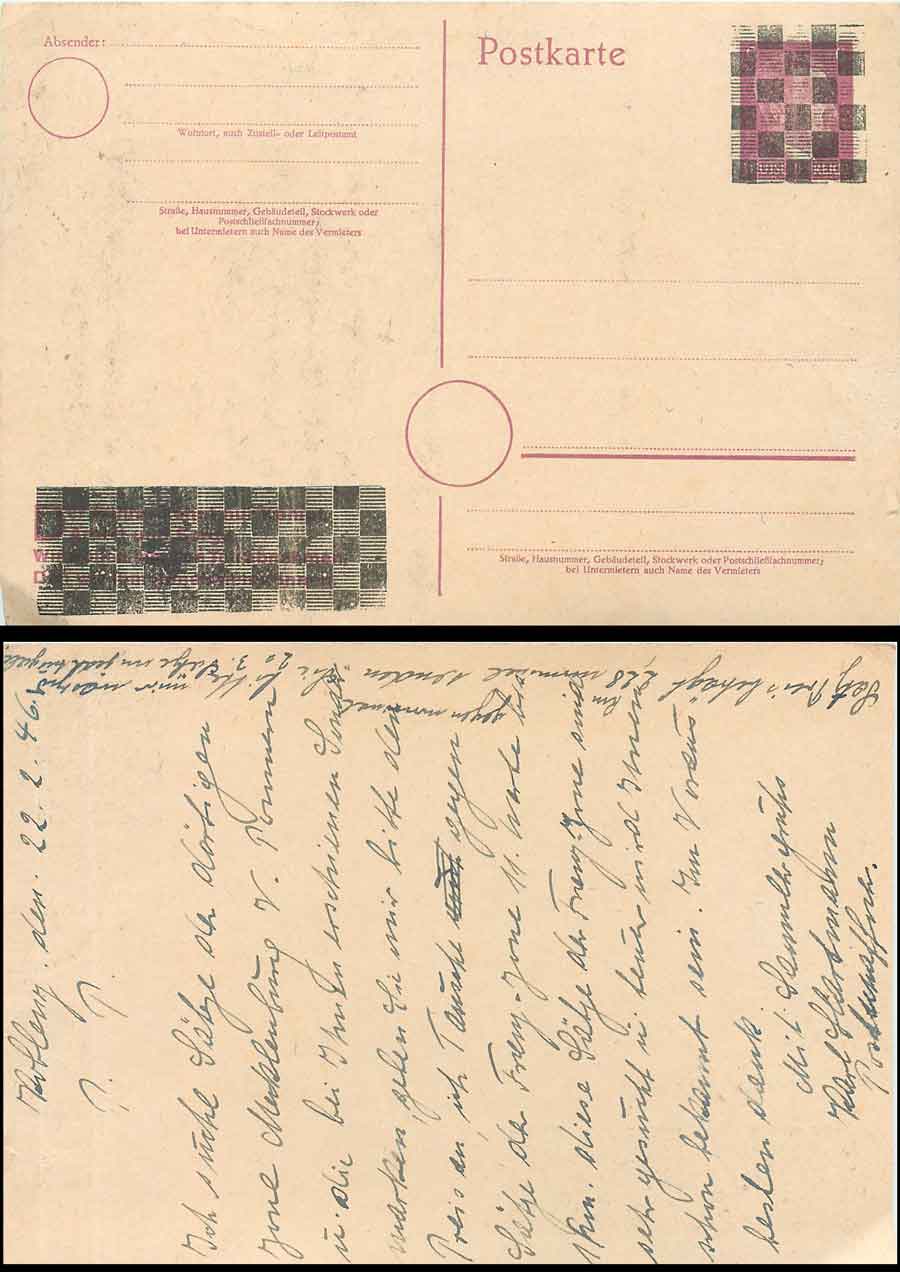 Absender:
Wohnort, auch Zustell- oder Leitpostamt
Straße, Hausnummer, Gebäudeteil, Stockwerk oder
Postschließfachnummer;
bei Untermietern auch Name des Vermieters
Postkarte
Straße, Hausnummer, Gebäudeteil, Stockwerk oder Postschließfachnummer;
bei Untermietern auch Name des Vermieters
Koblenz, den. 22. 2. 46.
P. P.
Ich suche Sätze der dortigen
Zone Mecklenburg V. Pommern
u. die bei Ihnen erschienen
marken, geben Sie mir bitte den
Preis an, ich Tausche gegen
Sätze der Franz-Zone 11. Werte
1 Pfg. diese Sätze der Franz-Zone sind
sehr gesucht u. teuer wird Ihnen
schon bekannt sein. Im Voraus
besten dank.
Mit Sammlergruß
Karl
Postschaffner.
Satz Preis beträgt senden. Sie bitte mir
gegen